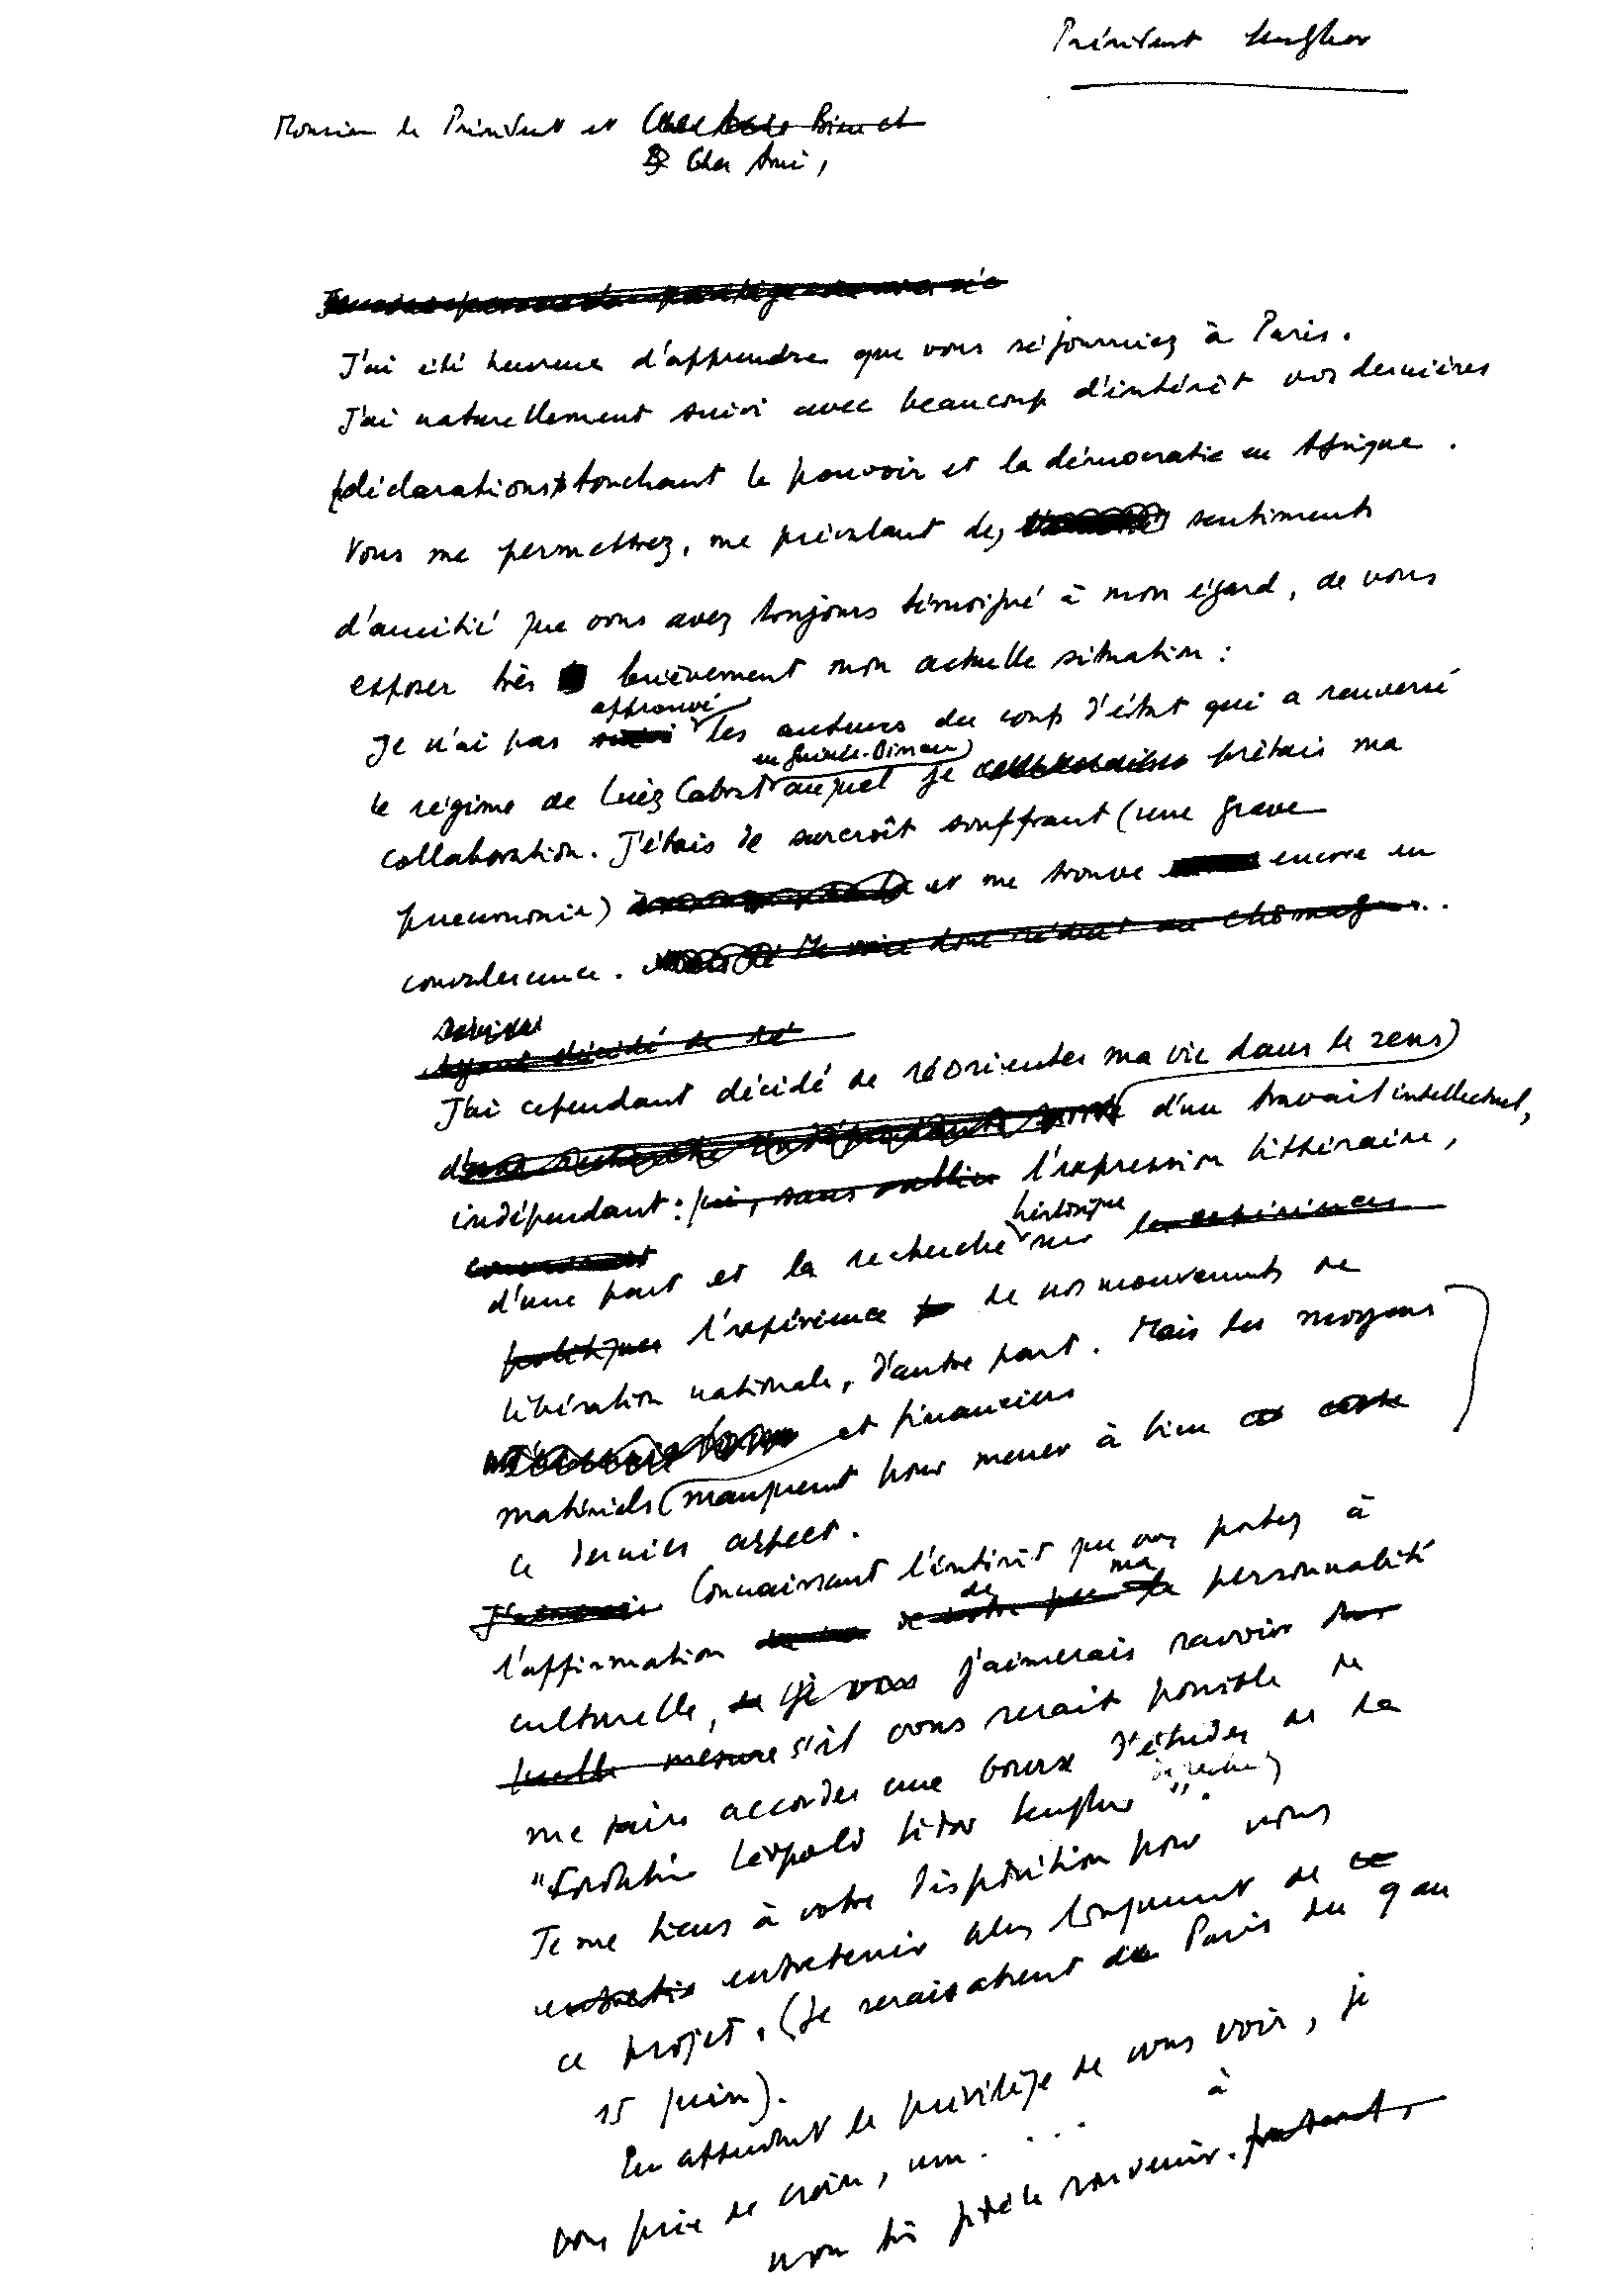 Président Senghor
Monsieur le Président et Cher
Cher Ami,
J'ai été heureux d'apprendre que vous séjourniez à Paris.
J'ai naturellement suivi avec beaucoup d'intérêt vos dernières
déclarations touchant le pouvoir et la démocratie en Afrique.
Vous me permettrez, me prévalant des sentiments
d'amitié que vous avez toujours témoigné à mon égard, de vous
exposer très brièvement mon actuelle situation :
approuvé
Je n'ai pas suivi les auteurs du coup d'état qui a renversé
en Guinée-Bissau
le régime de Luiz Cabral auquel je prêtais ma
collaboration. J'étais de surcroît souffrant (une grave
pneumonie) et me trouve encore en
convalescence. Me voici donc réduit au chômage..
Ayant décidé de ré
J'ai cependant décidé de réorienter ma vie dans le sens
d'une recherche indépendante d'un travail intellectuel,
indépendant : qui, sans oublier l'expression littéraire,
historique
d'une part et la recherche sur les expériences
politiques l'expérience de nos mouvements de
libération nationale, d'autre part. Mais les moyens
et financiers
matériels manquent pour mener à bien ce
ce dernier aspect.
J'aimerais Connaissant l'intérêt que vous portez à
de ma
l'affirmation de votre personnalité
culturelle, je vous j'aimerais savoir dans
quelle mesure s'il vous serait possible de
me faire accorder une bourse d'études de la
"Fondation Léopold Sédar Senghor".
Je me tiens à votre disposition pour vous
entretenir plus longuement de ce
ce projet. (Je serai absent de Paris du 9 au
15 juin).
En attendant le privilège de vous voir, je
vous prie de croire, mon.... à
mon très fidèle souvenir.